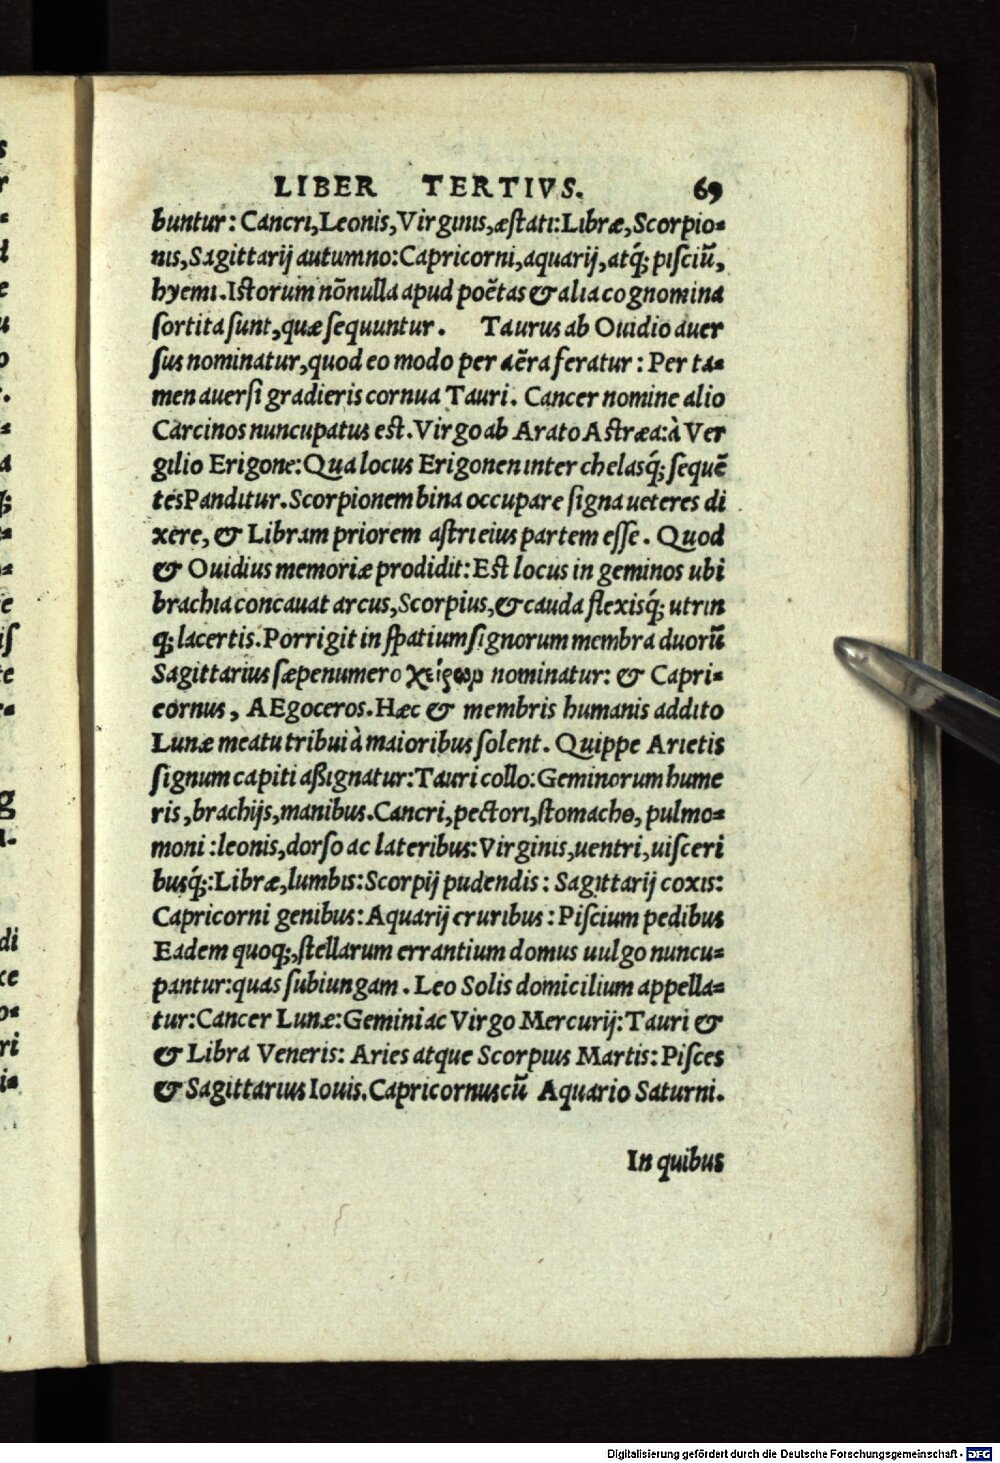 LIBER TERTIVS. 69
buntur: Cancri, Leonis, Virginis, æstati: Libræ, Scorpio-
nis, Sagittarij autumno: Capricorni, aquarij, atq́; pisciũ,
hyemi. Istorum nõnulla apud poëtas & alia cognomina
sortita sunt, quæ sequuntur. Taurus ab Ouidio auer
sus nominatur, quod eo modo per aëra feratur: Per ta-
men auersi gradieris cornua Tauri. Cancer nomine alio
Carcinos nuncupatus est. Virgo ab Arato Astræa: à Ver
gilio Erigone: Qua locus Erigonen inter chelasq́; sequẽ
tes Panditur. Scorpionem bina occupare signa ueteres di
xere, & Libram priorem astri eius partem esse. Quod
& Ouidius memoriæ prodidit: Est locus in geminos ubi
brachia concauat arcus, Scorpius, & cauda flexisq́; utrin
q́; lacertis. Porrigit in spatium signorum membra duorũ
Sagittarius sæpenumero χείρωρ nominatur: & Capri-
cornus, AEgoceros. Hæc & membris humanis addito
Lunæ meatu tribui à maioribus solent. Quippe Arietis
signum capiti aßignatur: Tauri collo: Geminorum hume
ris, brachijs, manibus. Cancri, pectori, stomacho, pulmo-
moni: leonis, dorso ac lateribus: Virginis, uentri, uisceri
busq́;: Libræ, lumbis: Scorpij pudendis: Sagittarij coxis:
Capricorni genibus: Aquarij cruribus: Piscium pedibus
Eadem quoq;, stellarum errantium domus uulgo nuncu-
pantur: quas subiungam. Leo Solis domicilium appella-
tur: Cancer Lunæ: Gemini ac Virgo Mercurij: Tauri &
& Libra Veneris: Aries atque Scorpius Martis: Pisces
& Sagittarius Iouis. Capricornus cũ Aquario Saturni.
In quibus
Digitalisierung gefördert durch die Deutsche Forschungsgemeinschaft - DFG